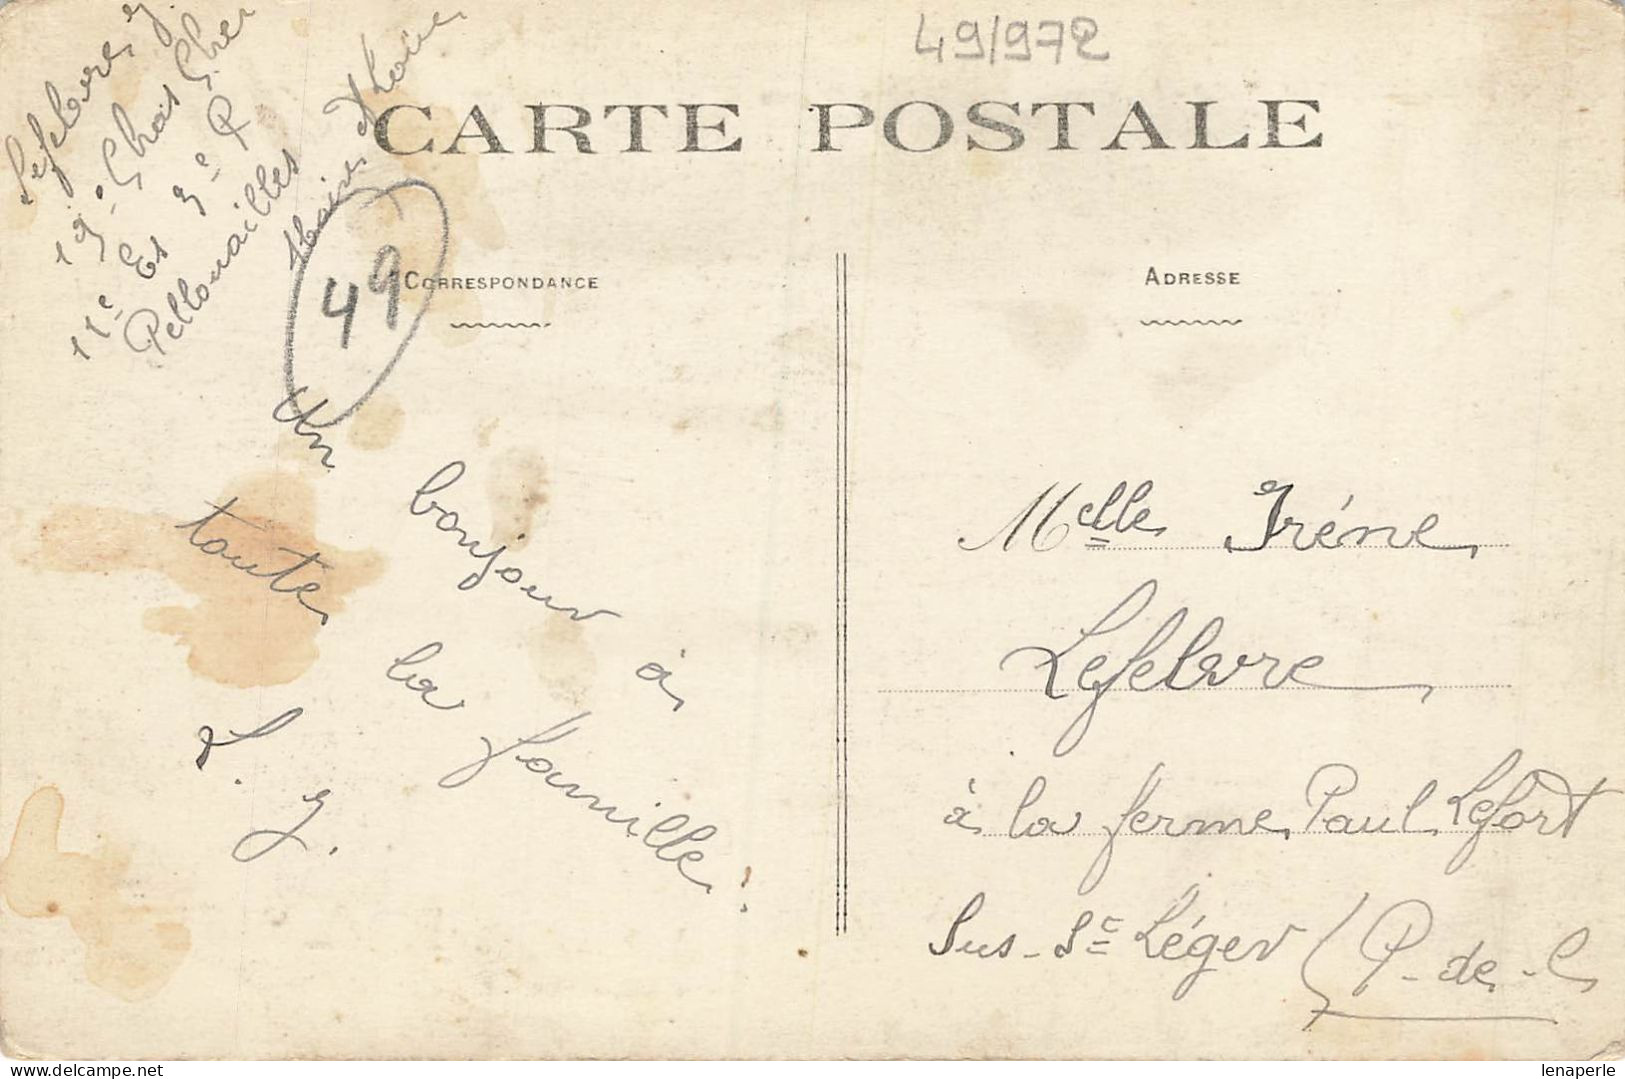 49/972
Lefebvre J.
19e Chas Cher
11e Es 3e P
Pellouailles
Maine & Loire
CARTE POSTALE
49
CORRESPONDANCE
ADRESSE
Un bonjour à
toute la famille !
L. J.
Melle Iréne
Lefebvre
à la ferme Paul Lefort
Sus-St Léger (P-de-C
lenaperle